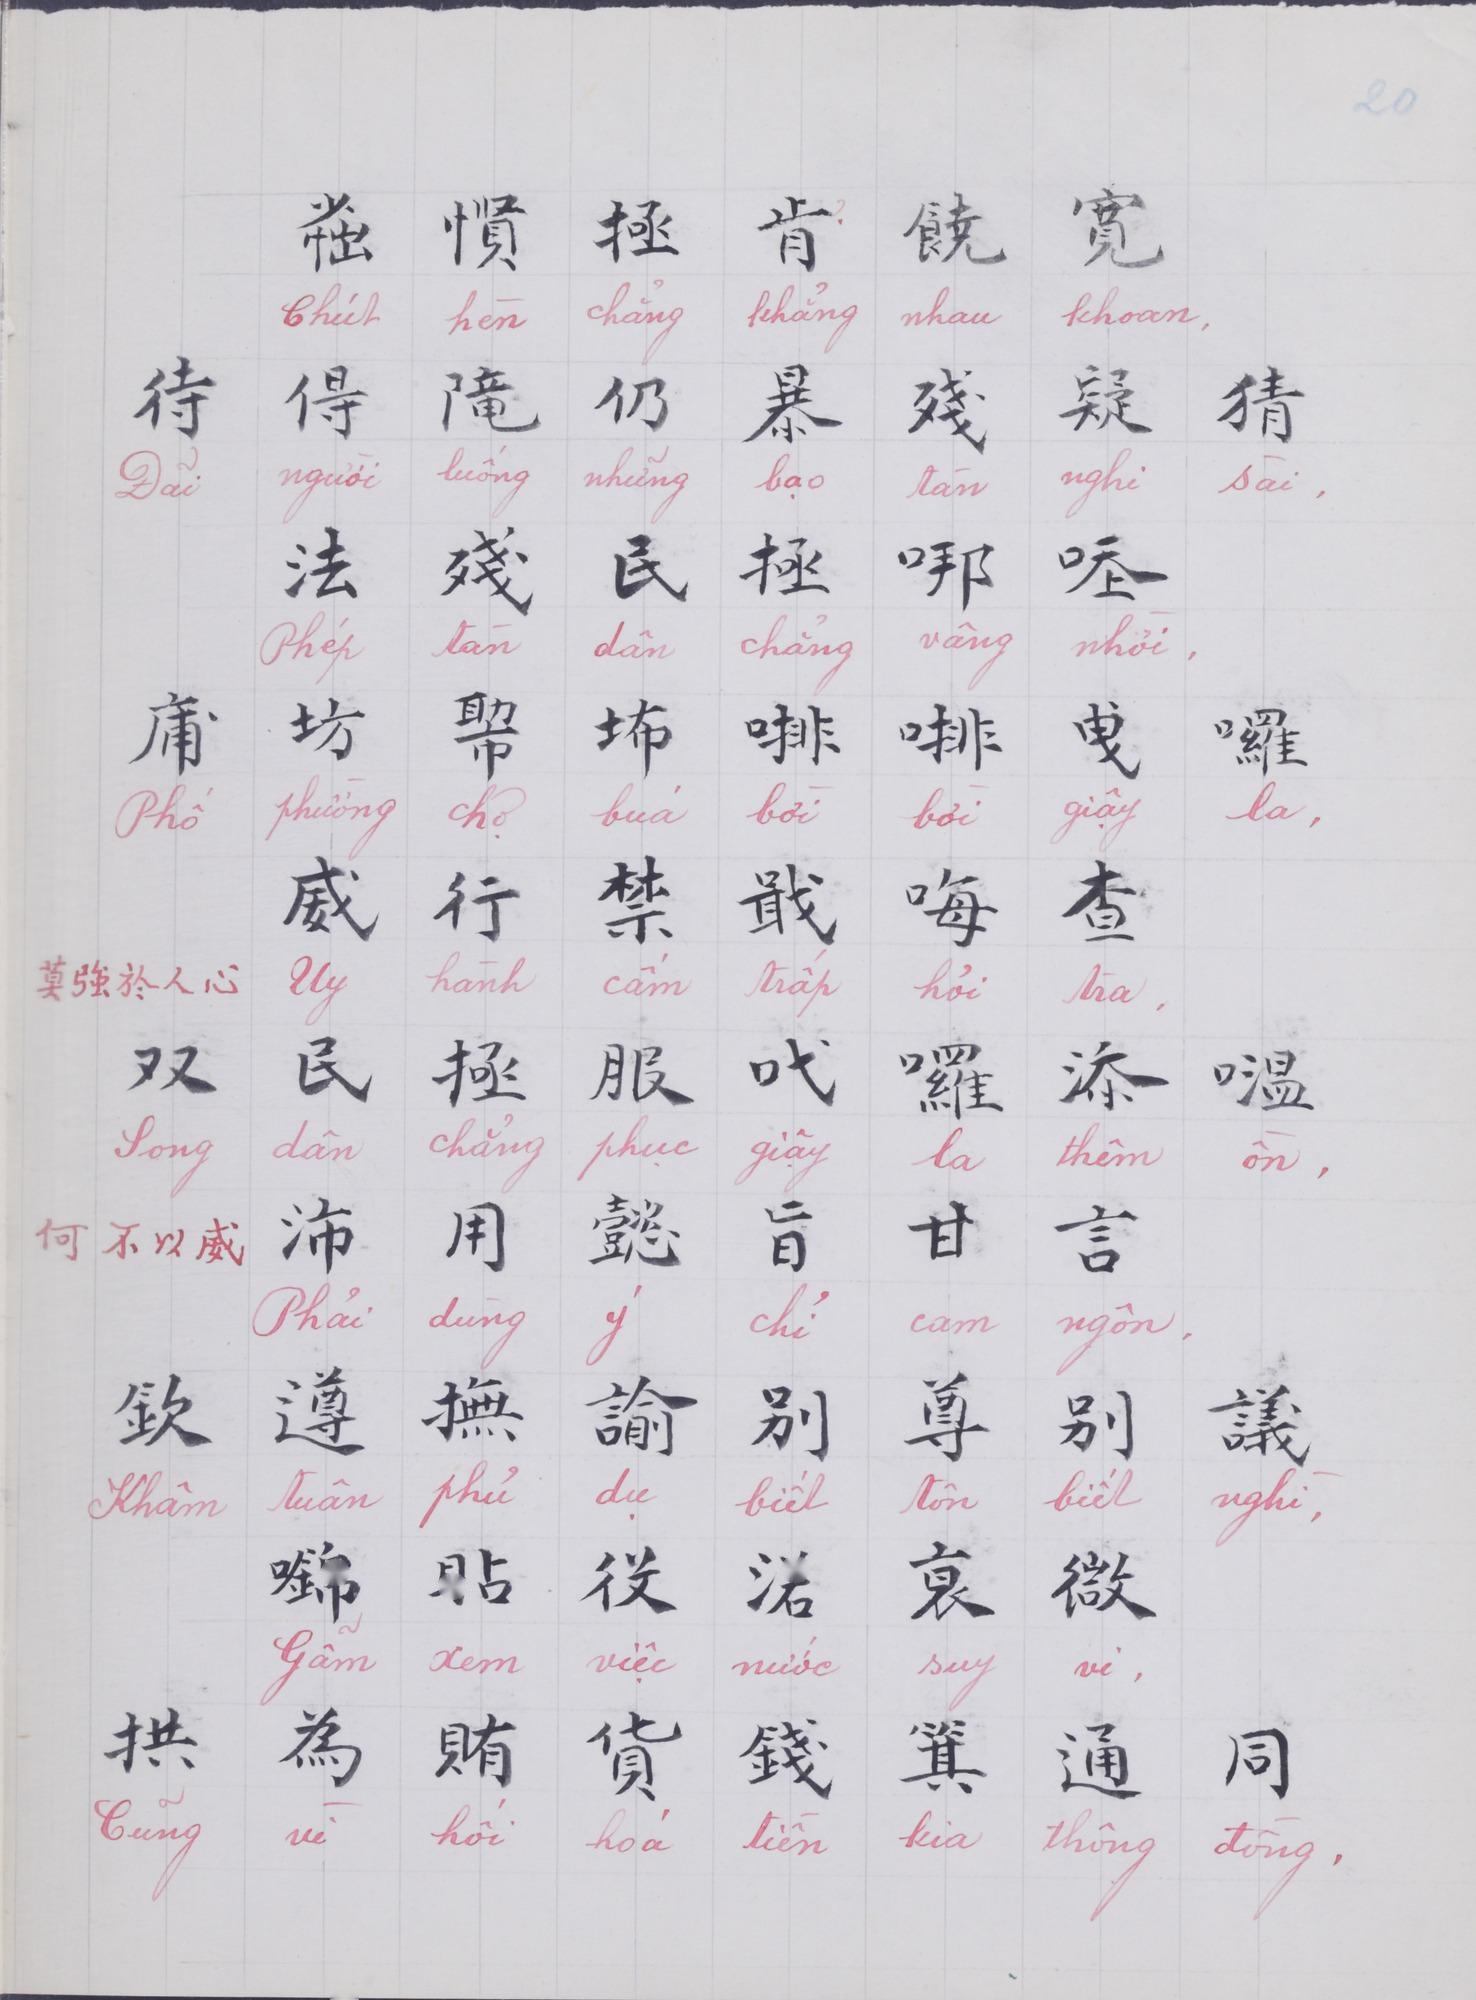 20
�、慣極肯饒寬
Chút hèn chẳng khẳng nhau khoan,
待得隴仍暴殘疑猜
Đãi người luống những bạo tàn nghi sài,
法殘民極哪㗔
Phép tàn dân chẳng vâng nhời,
庯坊𢄂坲啡啡曳囉
Phố phường chợ buá bời bời giậy la,
威行禁戢晦查
Uy hành cấm trấp hỏi tra,
莫強於人心
双民極服吠囉添嗢
Song dân chẳng phục giậy la thêm ồn,
何不以威
沛用懿旨甘言
Phải dùng ý chỉ cam ngôn,
欽遵撫諭別尊別議
Khâm tuân phủ dụ biết tôn biết nghì,
𠼽貼役渃衰微
Gẫm xem việc nước suy vi,
拱為賄貨錢箕通同
Cũng vì hối hoá tiền kia thông đồng,